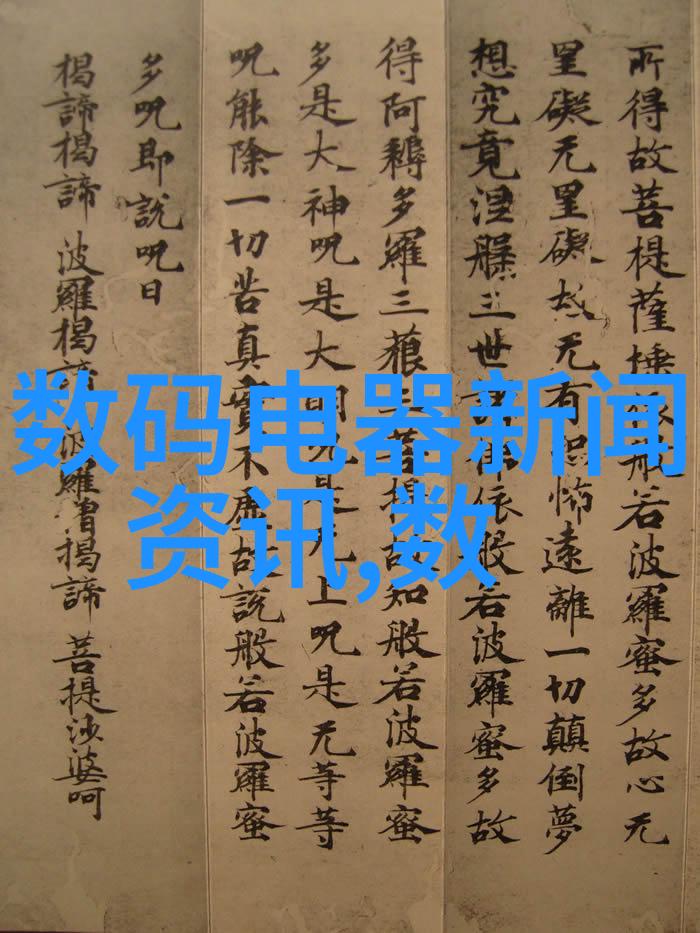 所得故菩提薩埵依般若波羅蜜多故心无
罣礙无罣礙故无有恐怖遠離一切顛倒夢
想究竟涅槃三世諸佛依般若波羅蜜多故
得阿耨多羅三藐三菩提故知般若波羅蜜
多是大神呪是大明呪是无上呪是无等等
呪能除一切苦真實不虛故說般若波羅蜜
多呪即說呪曰
揭諦揭諦 波羅揭諦 波羅僧揭諦 菩提沙婆呵
数码电器新闻
资讯,数